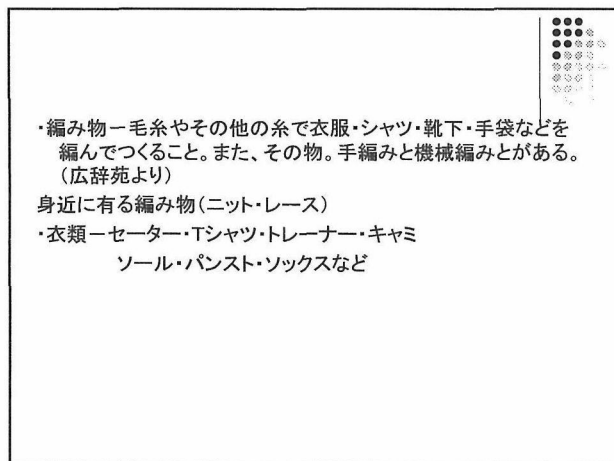 ・編み物－毛糸やその他の糸で衣服・シャツ・靴下・手袋などを
編んでつくること。また、その物。手編みと機械編みとがある。
（広辞苑より）
身近に有る編み物（ニット・レース）
・衣類－セーター・Tシャツ・トレーナー・キャミ
ソール・パンスト・ソックスなど